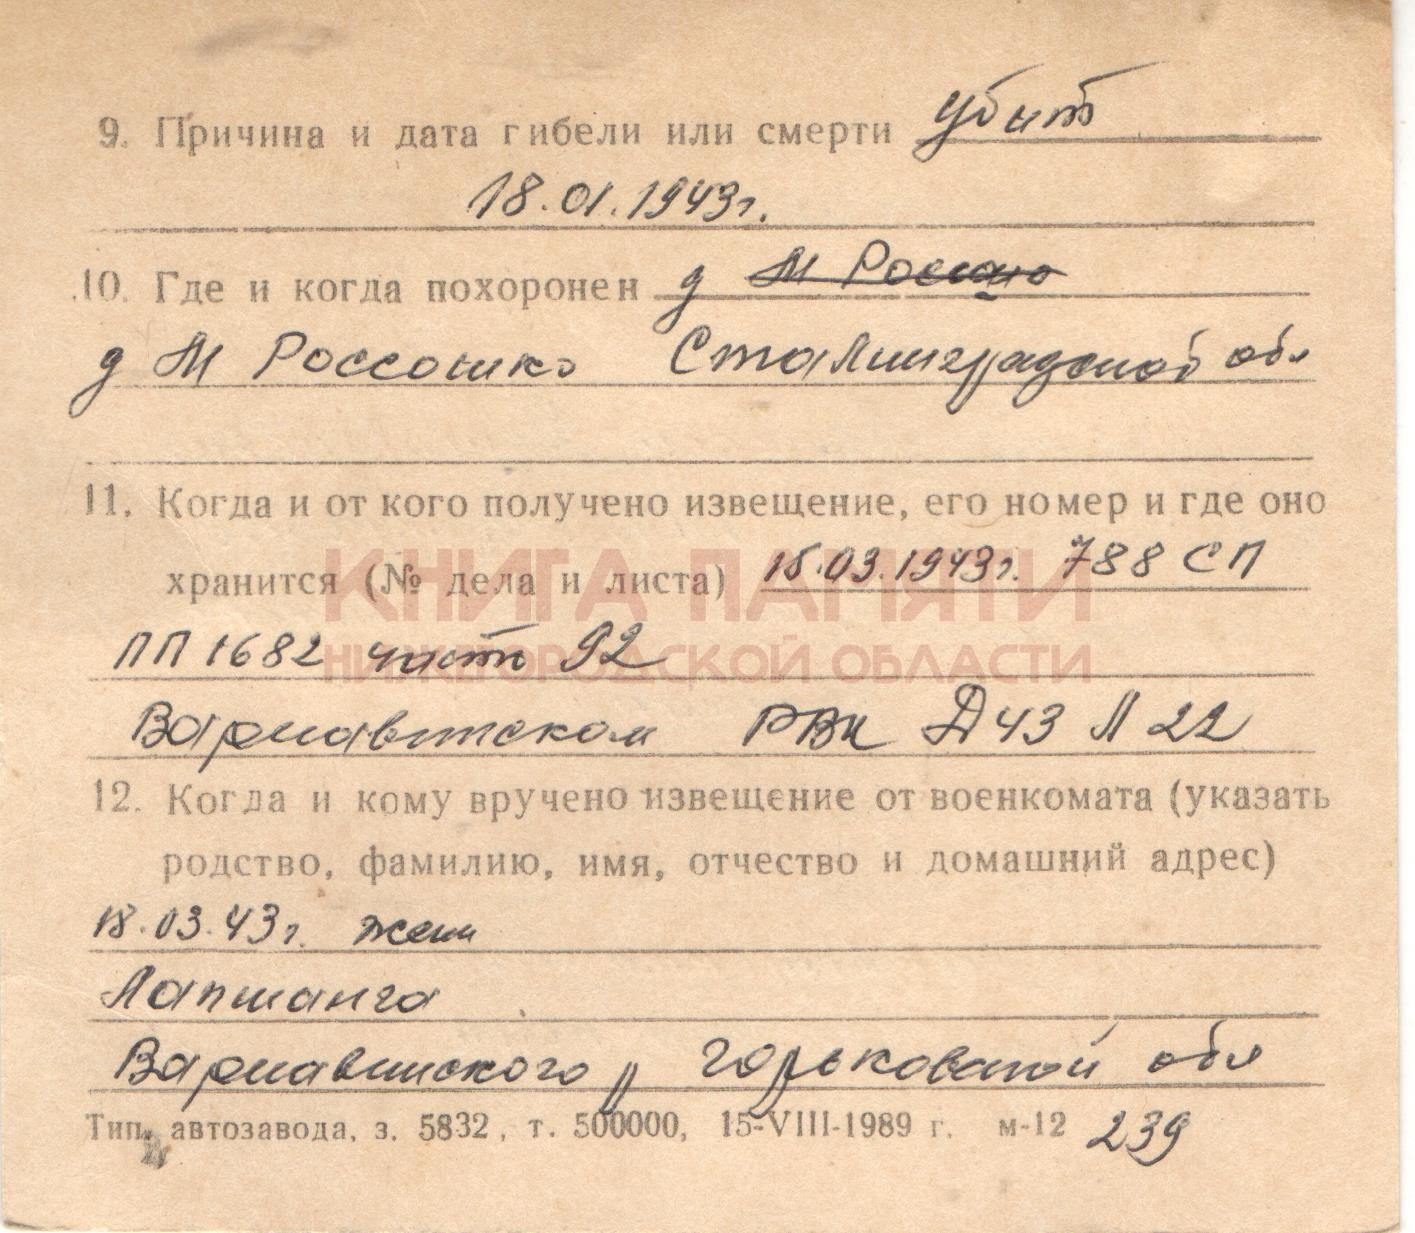 9. Причина и дата гибели или смерти убит
18.01.1943г.
10. Где и когда похоронен д
д М Россошко Сталинградской обл
11. Когда и от кого получено извещение, его номер и где оно
хранится (№ дела и листа) 15.03.1943г. 788 СП
КНИГА ПАМЯТИ
ПП 1682 часть 92
НИЖЕГОРОДСКОЙ ОБЛАСТИ
Варнавинском РВК Д 43 Л 22
12. Когда и кому вручено извещение от военкомата (указать
родство, фамилию, имя, отчество и домашний адрес)
18.03.43г. жене
Лапшанга
Варнавинского р Горьковской обл
Тип. автозавода, з. 5832, т. 500000, 15-VIII-1989 г. м-12 239